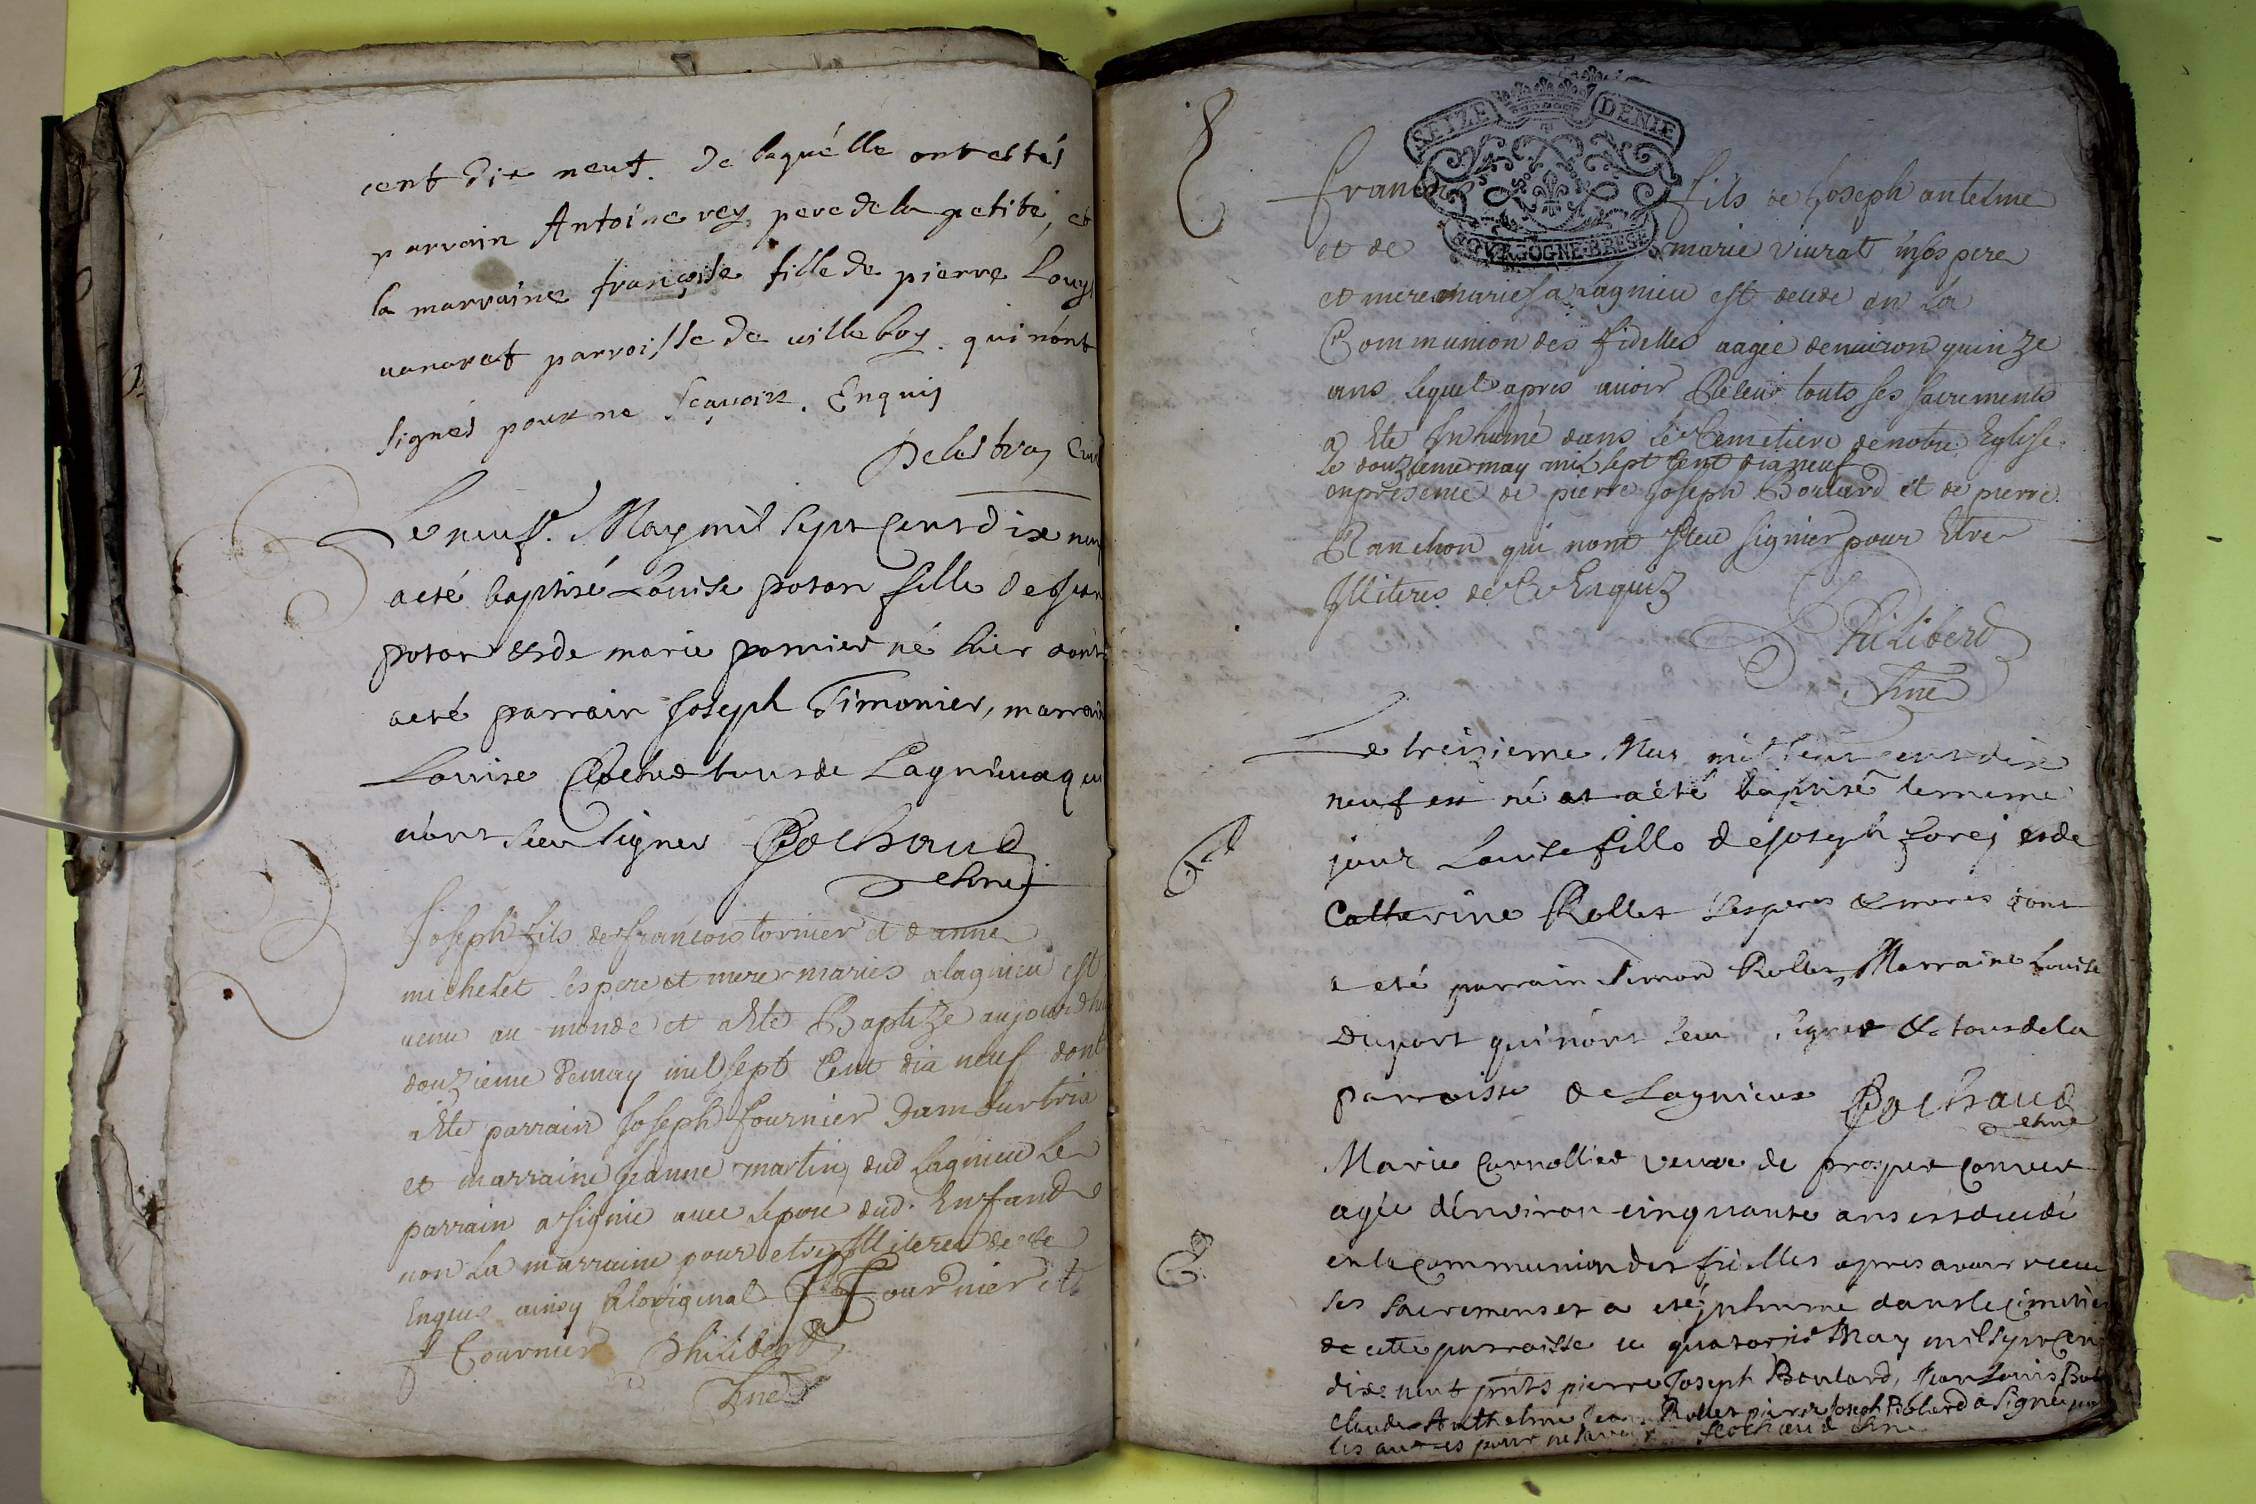 cent dix neuf. de laquélle ont estés
parrain Antoine rey pere de la petite, et
la marraine françoise fille de pierre Louys
vanaret parroisse de villeboy. qui n'ont
signés pour ne sçavoir. Enquis
Delestraz Curé
Le neuf. May mil sept cent dix neuf
a eté baptisé Louise poton fille de Jean
poton et de marie pornier né hier dont
a eté parrain Joseph Simonier, marraine
Louise Cochet tous de Lagnieu qui
n'ont sceu signer Cochaud
vicaire
Joseph fils de françois tornier et d'anne
michelet ses pere et mere mariés a lagnieu est
venu au monde et a ete Baptize aujourdhui
douzieme de may mil sept Cent dix neuf dont
a ete parrain Joseph fournier dam
et marraine Jeanne martin dud Lagnieu Le
parrain a signie avec le pere dud. Enfand
non La marraine pour etre Illiteree de ce
Enquise ainsy a loriginal JF Fournier et
f Tournier Philiberd
Vicaire
SEIZE DENIE
BOVRGOGNE·BRESSE
fils de Joseph antelme
et de marie viurat ses pere
et mere mariés a Lagnieu est decede en La
Communion des fidelles aagée denviron quinze
ans lequel apres avoir Receu touts ses sacrements
a ete Inhumé dans le Cemetiere de notre Eglise
Le douzieme may mil sept Cent dix neuf
en presence de pierre Joseph Boulard et de pierre
Ranchon qui nont sceu signier pour Etre
Illiteres de Ce Enquiz
Philiberd
Vicaire
Le treizieme May mil sept cent dix
neuf est né et a eté baptisé le meme
jour Louise fille de Joseph forej et de
Catterine Rollet ses peres et meres dont
a eté parrain Simon Rollet, Marraine Louise
Duport qui n'ont sceu signer & tous de la
parroisse de Lagnieux Cochaud
vicaire
Marie Cornollier veuve de prosper Convert
agée d'environ cinquante ans est decedé
en la communion des fidelles apres avoir receu
ses sacrements et a eté jnhumé dans le cimetiere
de cette parroisse ce quatorze May mil sept Cent
dix neuf pnts pierre Joseph Boulard, Jean Louis
Claude Anthelme Jean Rollet pierre Joseph Bolard a signé
les autres pour ne savoir Cochaud vicaire